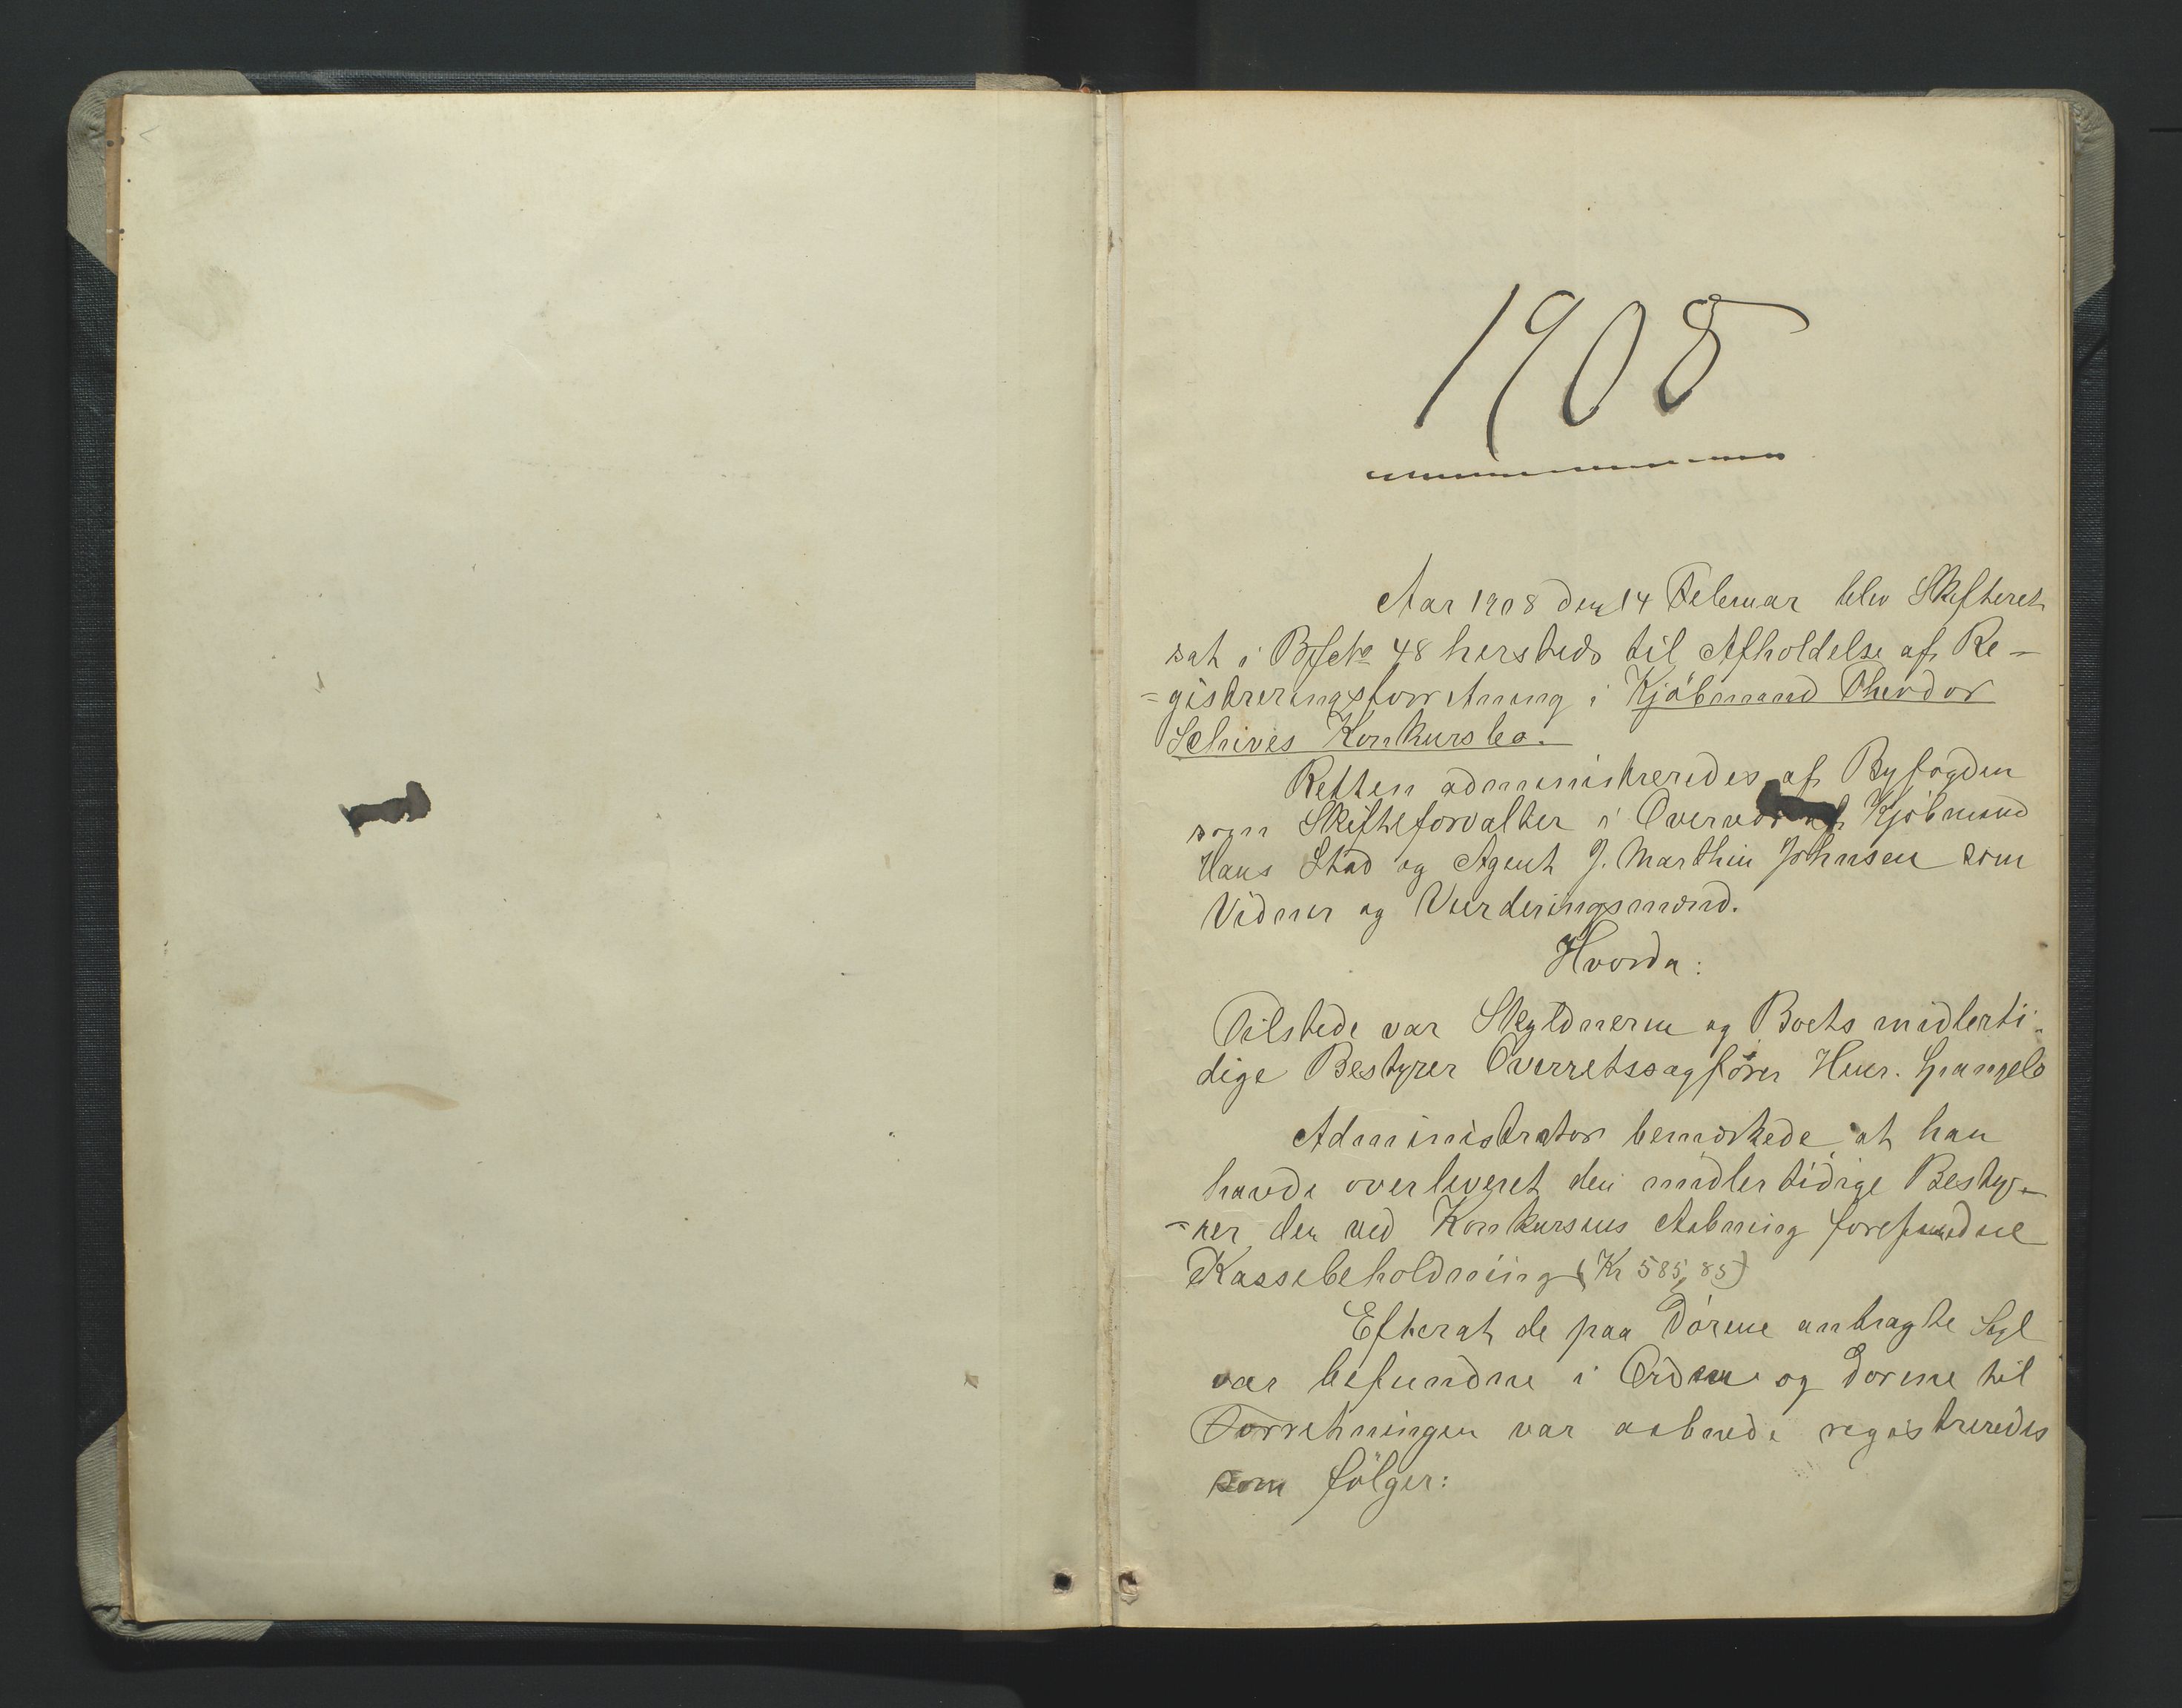 1908
Aar 1908 den 14 Februar blev Skifteret
sat i Bysete 48 hersteds til Afholdelse af Re-
=gistreringsforretning i Kjöbmand Theodor
Schives Konkursbo.
Retten administreredes af Byfogden
som Skifteforvalter i Overvær af Kjöbmand
Hans Stad og Agent J. Marthin Johnsen som
Vidner og Vurderingsmænd.
Hvorda:
Tilstede var Skyldneren og Boets midlerti-
dige Bestyrer Overretssagförer Henr.
Administrator bemærkede, at han
havde overleveret den midlertidige Besty-
=rer den ved Konkursens Aabning forefundne
Kassebeholdning (Kr 585,85)
Efterat de paa Dörene anbragte Segl
var befundne i Orden og Dorene til
Forretningen var aabnede registreredes
som fölger: